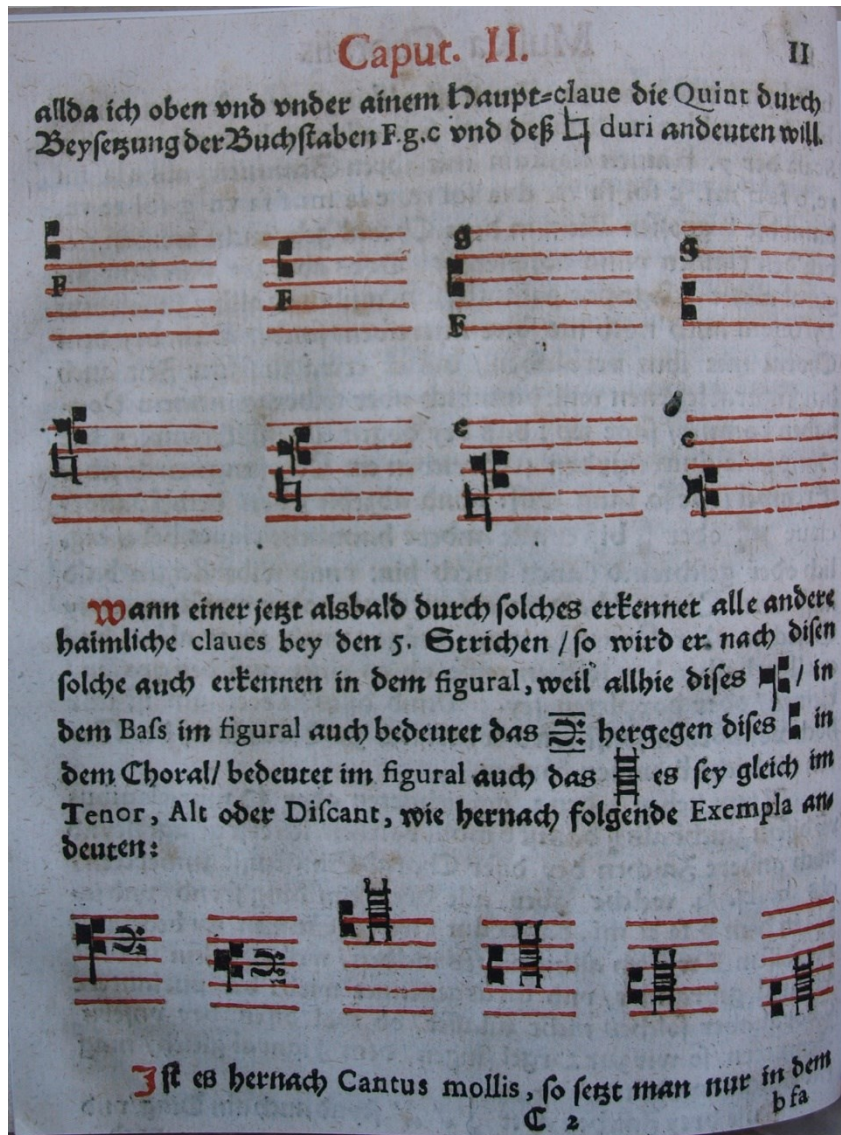 Caput. II. II
allda ich oben vnd vnder ainem Haupt=claue die Quint durch
Beysetzung der Buchstaben F.g.c vnd deß ♮ duri andeuten will.
F F g F g
c c
Wann einer jetzt alsbald durch solches erkennet alle andere
haimliche claues bey den 5. Strichen / so wird er nach disen
solche auch erkennen in dem figural, weil allhie dises / in
dem Bass im figural auch bedeutet das hergegen dises in
dem Choral / bedeutet im figural auch das es sey gleich im
Tenor, Alt oder Discant, wie hernach folgende Exempla an=
deuten:
Ist es hernach Cantus mollis, so setzt man nur in dem
C 2 b fa